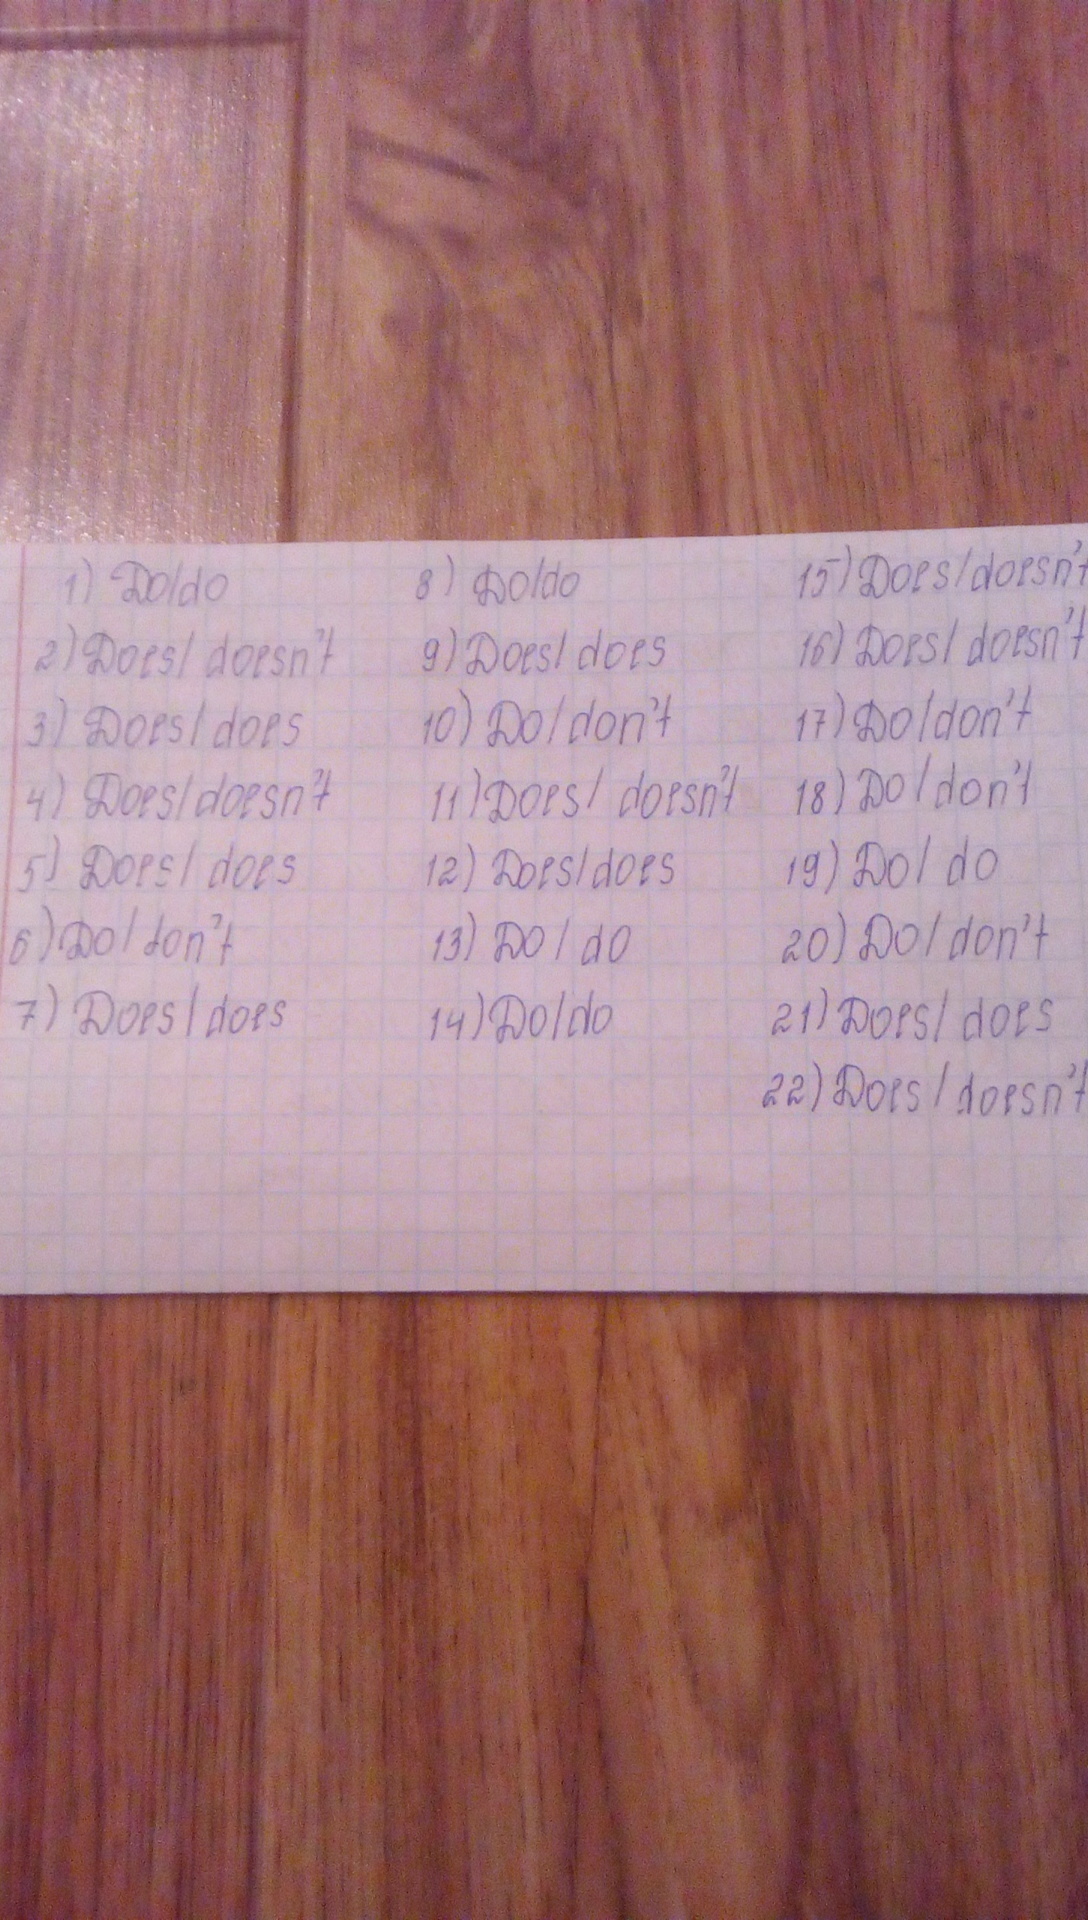 1) Do/do
2) Does/ doesn't
3) Does/does
4) Does/doesn't
5) Does/ does
6) Do/ don't
7) Does/does
8) Do/do
9) Does/ does
10) Do/don't
11) Does/ doesn't
12) Does/does
13) Do/ do
14) Do/do
15) Does/doesn't
16) Does/ doesn't
17) Do/don't
18) Do/ don't
19) Do/ do
20) Do/ don't
21) Does/ does
22) Does/ doesn't